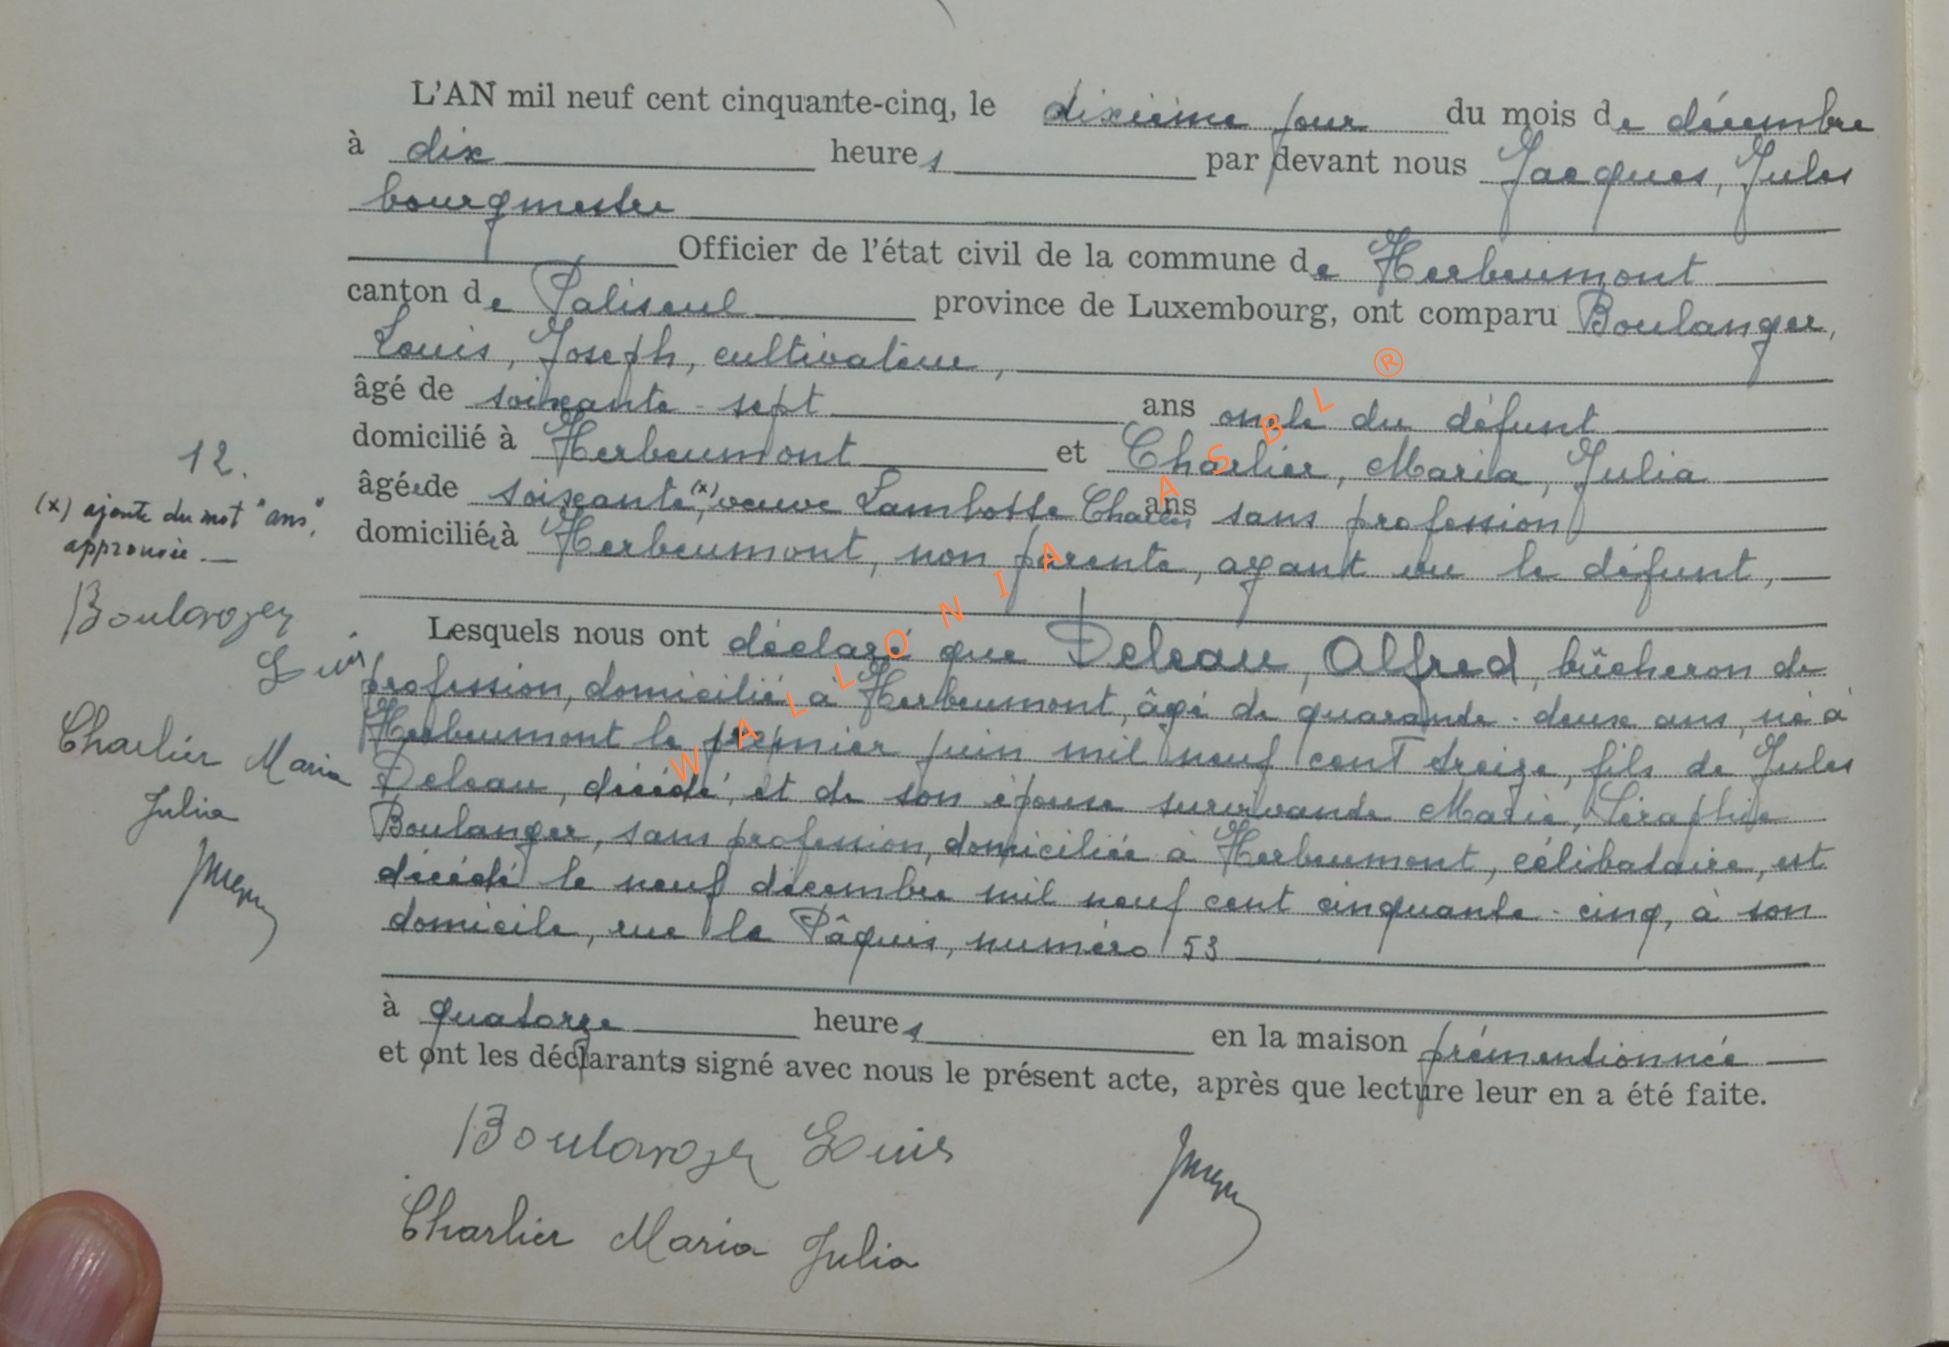 L'AN mil neuf cent cinquante-cinq, le dixième jour du mois de décembre
à dix heures par devant nous Jacques, Jules
bourgmestre
Officier de l'état civil de la commune de Herbeumont
canton de Paliseul province de Luxembourg, ont comparu Boulanger,
Louis, Joseph, cultivateur,
âgé de soixante-sept ans oncle du défunt
domicilié à Herbeumont et Charlier, Maria, Julia
âgée de soixante (x), veuve Lambotte Charles ans sans profession
domiciliée à Herbeumont, non parente, ayant vu le défunt,
Lesquels nous ont déclaré que Deleau, Alfred, bûcheron de
profession, domicilié à Herbeumont, âgé de quarante-deux ans, né à
Herbeumont le premier juin mil neuf cent treize, fils de Jules
Deleau, décédé, et de son épouse survivante Marie, Séraphie
Boulanger, sans profession, domiciliée à Herbeumont, célibataire, est
décédé le neuf décembre mil neuf cent cinquante-cinq, à son
domicile, rue le Pâquis, numéro 53
à quatorze heures en la maison prémentionnée
et ont les déclarants signé avec nous le présent acte, après que lecture leur en a été faite.
Boulanger Louis
Charlier Maria Julia
12.
(x) ajoute du mot "ans",
approuvée.
Boulanger
Louis
Charlier Maria
Julia
WALLONIA ASBL ®